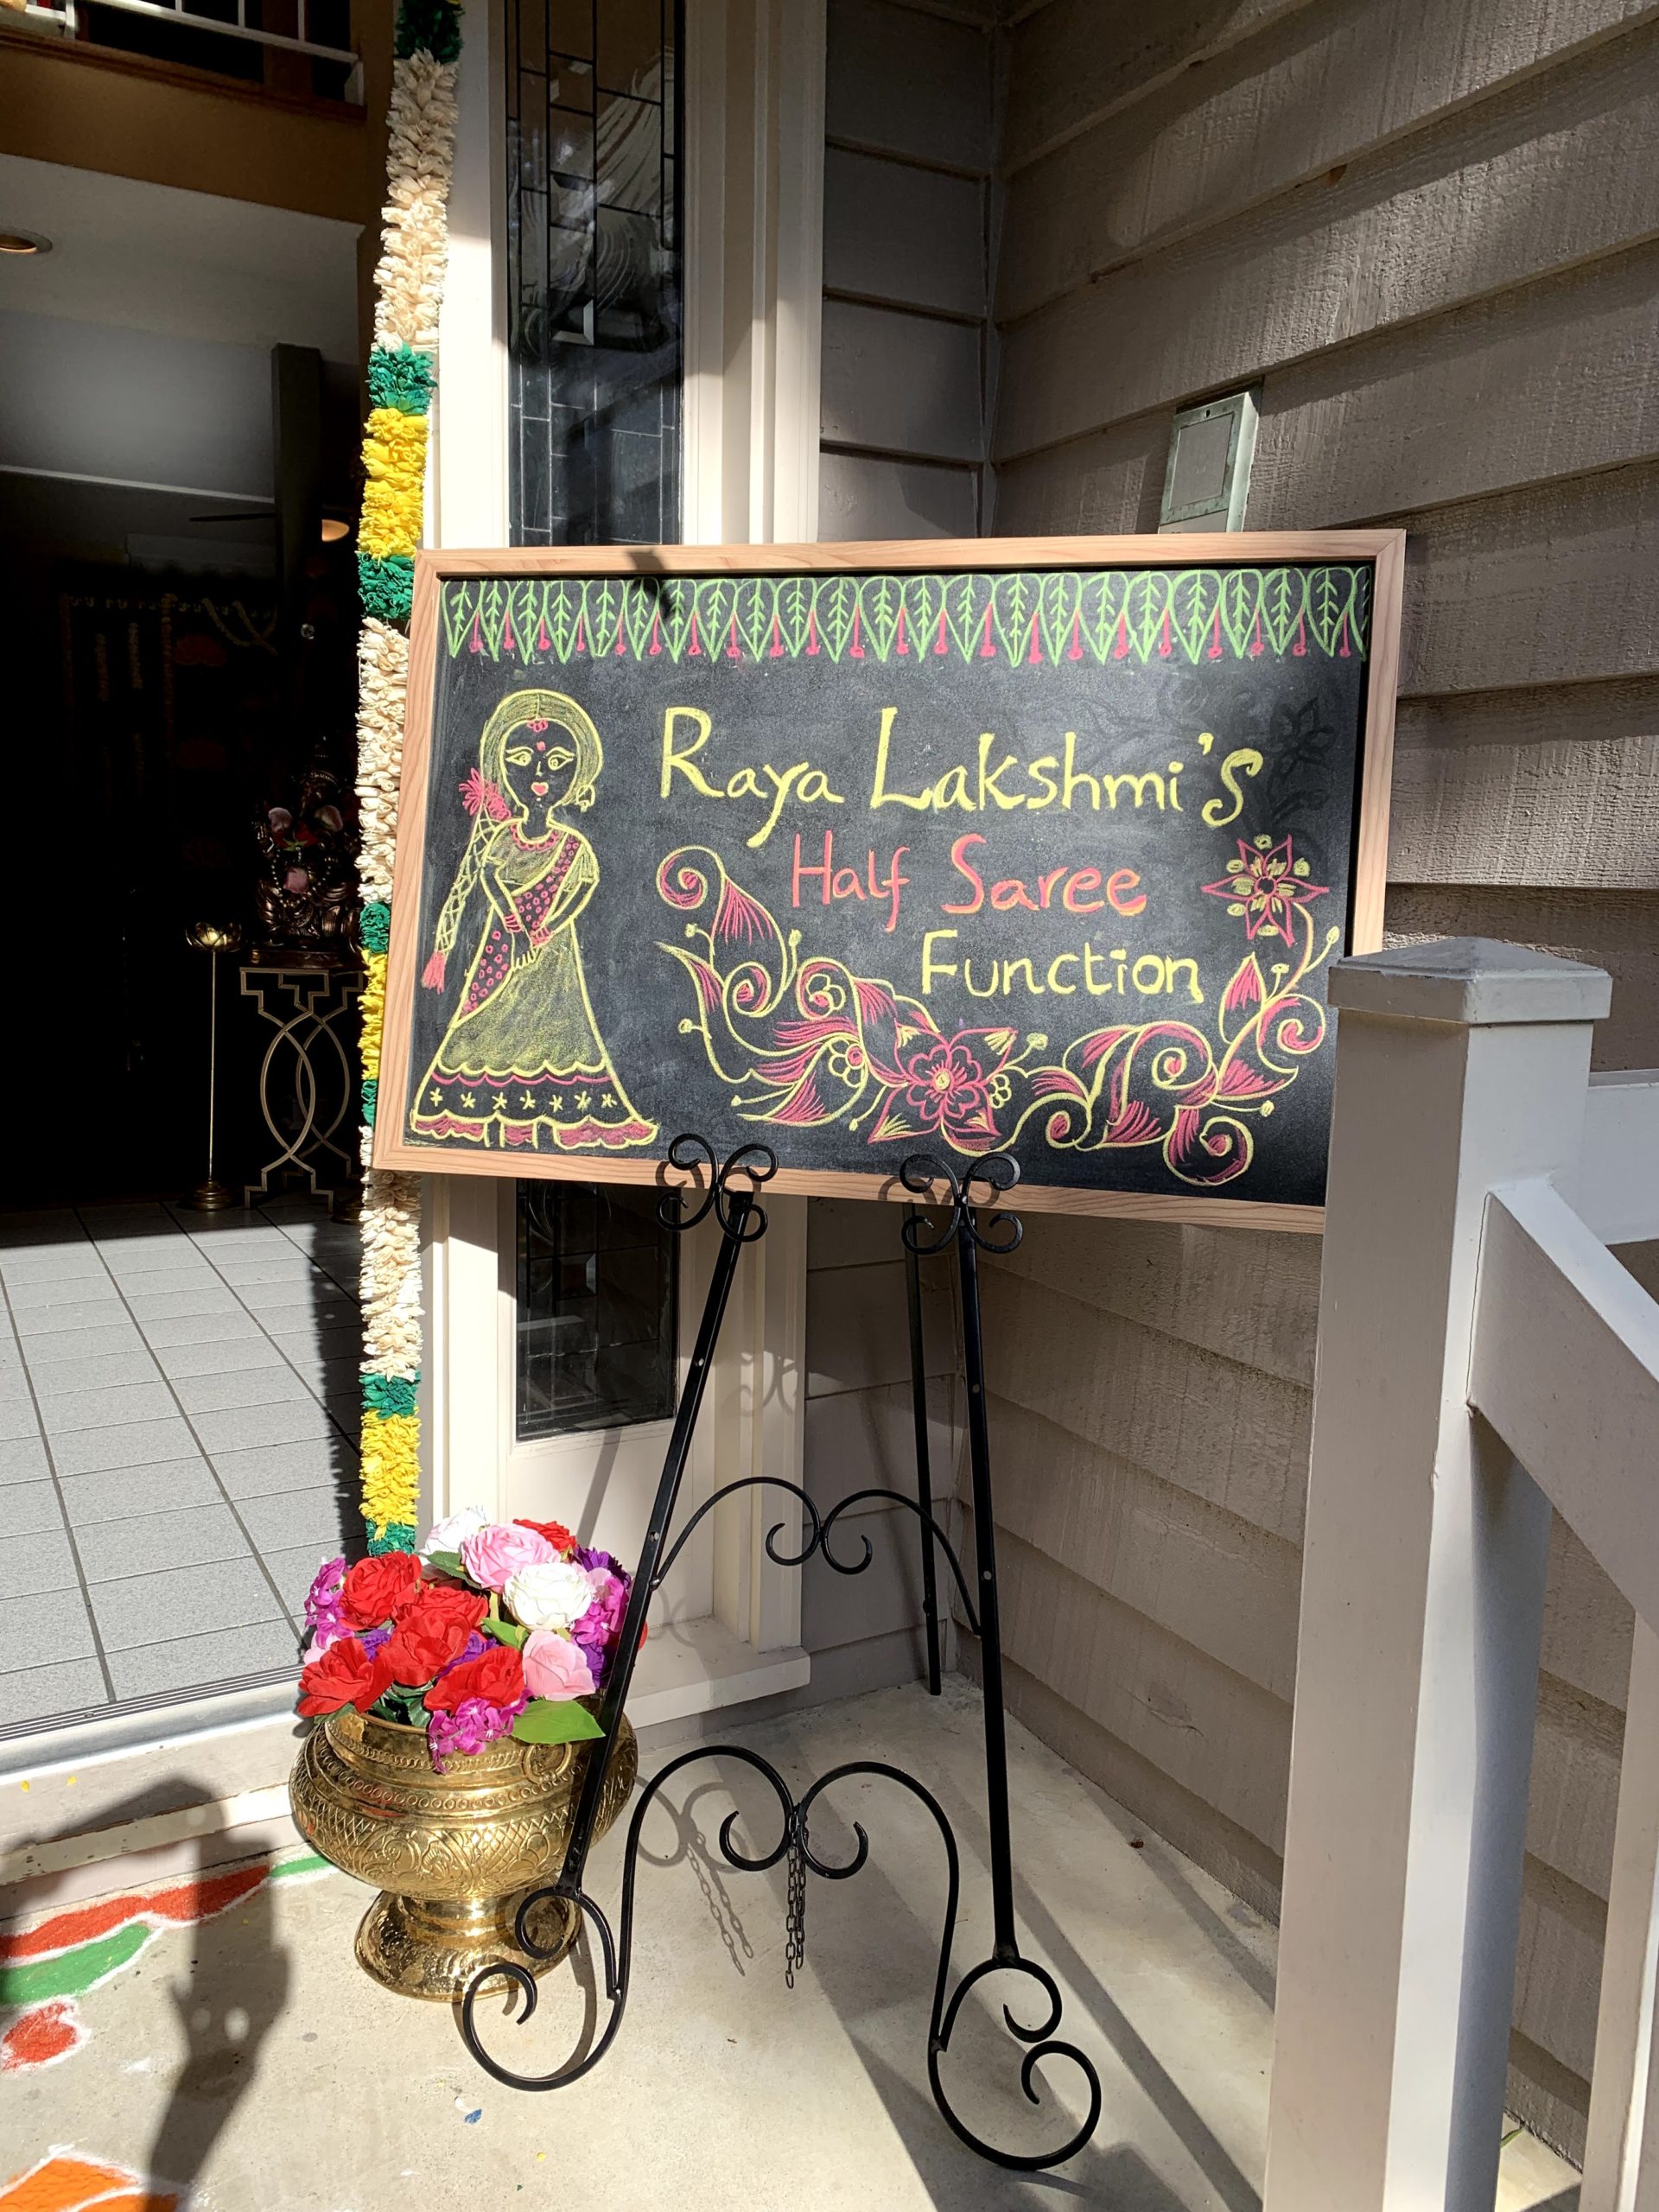 Raya Lakshmi's
Half Saree
Function